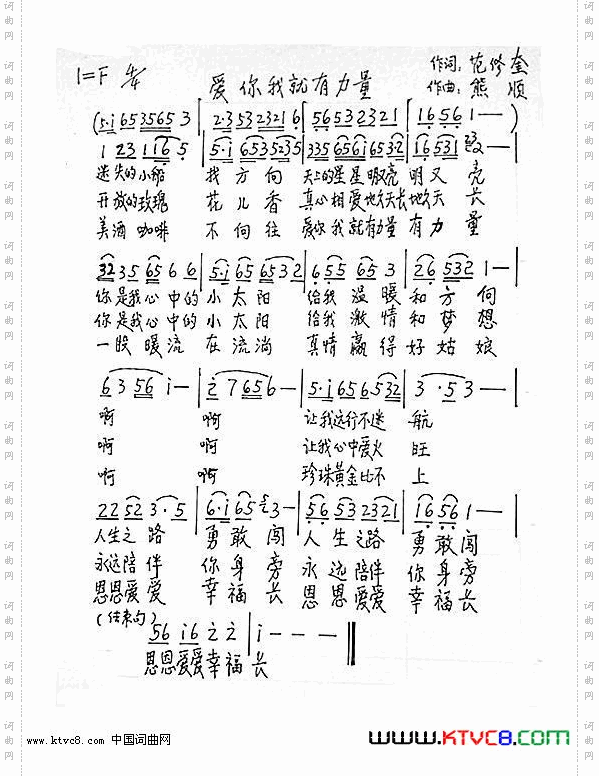 1=F 4/4
爱你我就有力量
作词:范修奎
作曲:熊顺
(5·i 65 3565 3 | 2·3 53 2321 6 | 56 53 2321 | 16 56 1 — )
1 23 1 16 5 | 5·i 6535 235 | 335 656i 6532 | 16 531 2 —
迷失的小船 找方向 天上的星星明又亮 明又亮
开放的玫瑰 花儿香 真心相爱地久天长地久天长
美酒咖啡 不向往 爱你我就有力量有力量
32 35 65 6 6 | 5·i 65 6532 | 6 55 65 3 | 26 532 1 —
你是我心中的小太阳 给我温暖和方向
你是我心中的小太阳 给我激情和梦想
一股暖流在流淌 真情赢得好姑娘
6 3 56 i — | 2 7 656 — | 5·i 656532 | 3 · 53 —
啊 啊 让我远行不迷航
啊 啊 让我心中爱火旺
啊 啊 珍珠黄金比不上
22 52 3·5 | 6·i 65 3 — | 56 53 2321 | 16 56 1 —
人生之路 勇敢闯 人生之路 勇敢闯
永远陪伴 你身旁 永远陪伴 你身旁
恩恩爱爱 幸福长 恩恩爱爱 幸福长
(结束句)
56 i6 2 2 | i — — —
恩恩爱爱幸福长
www.ktvc8.com 中国词曲网
WWW.KTVC8.COM
词曲网